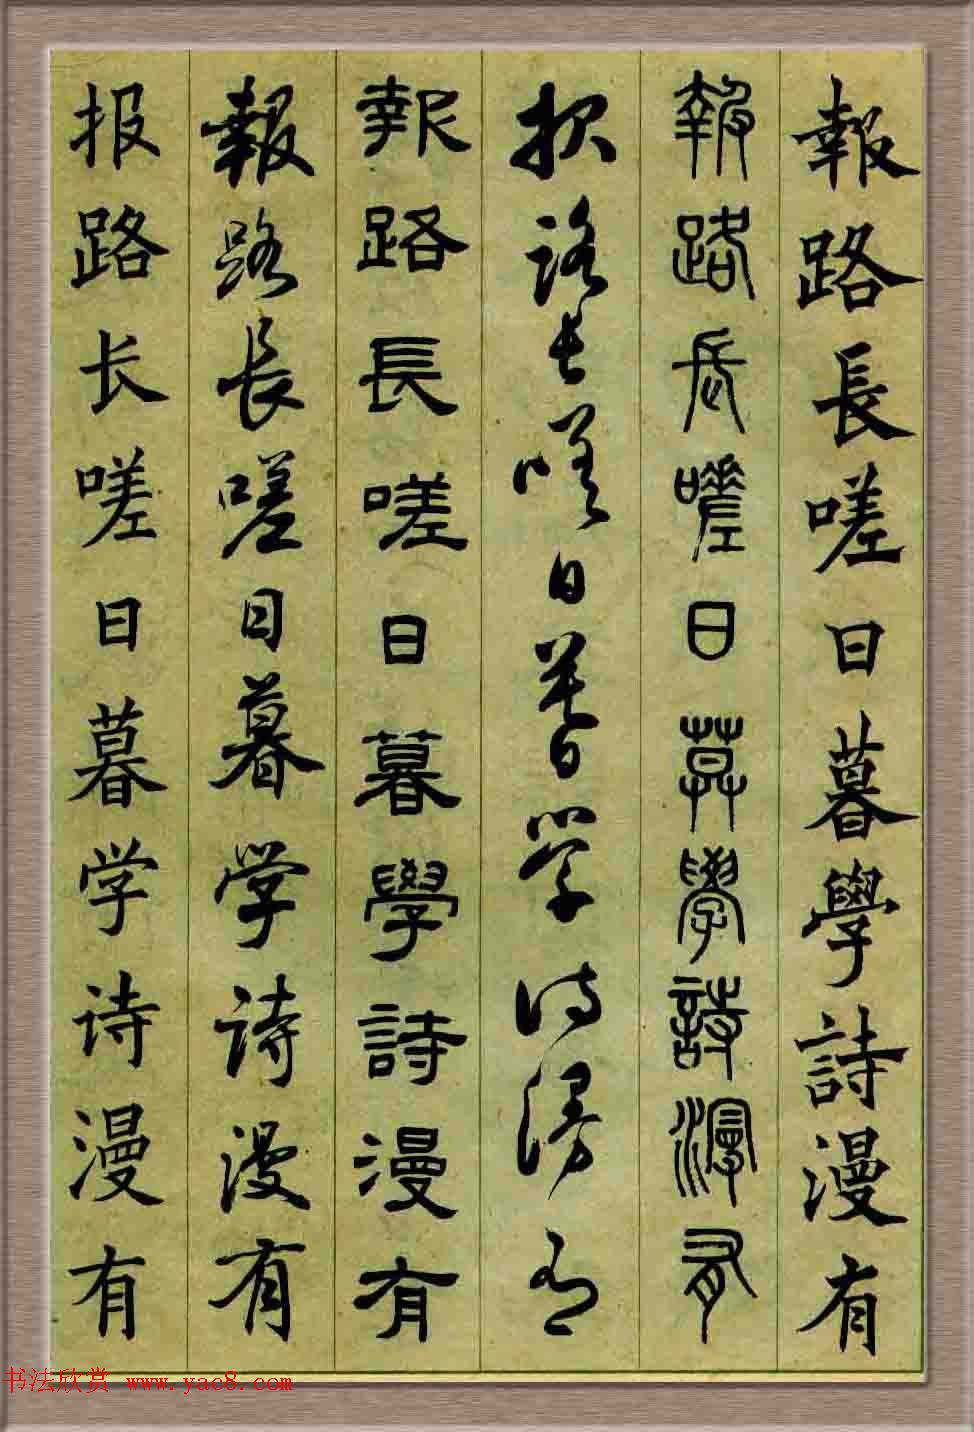 報路長嗟日暮學詩漫有
報路長嗟日莫學詩漫有
报路长嗟日暮学诗漫有
報路長嗟日暮學詩漫有
報路長嗟日暮学诗漫有
报路长嗟日暮学诗漫有
书法欣赏 www.yac8.com